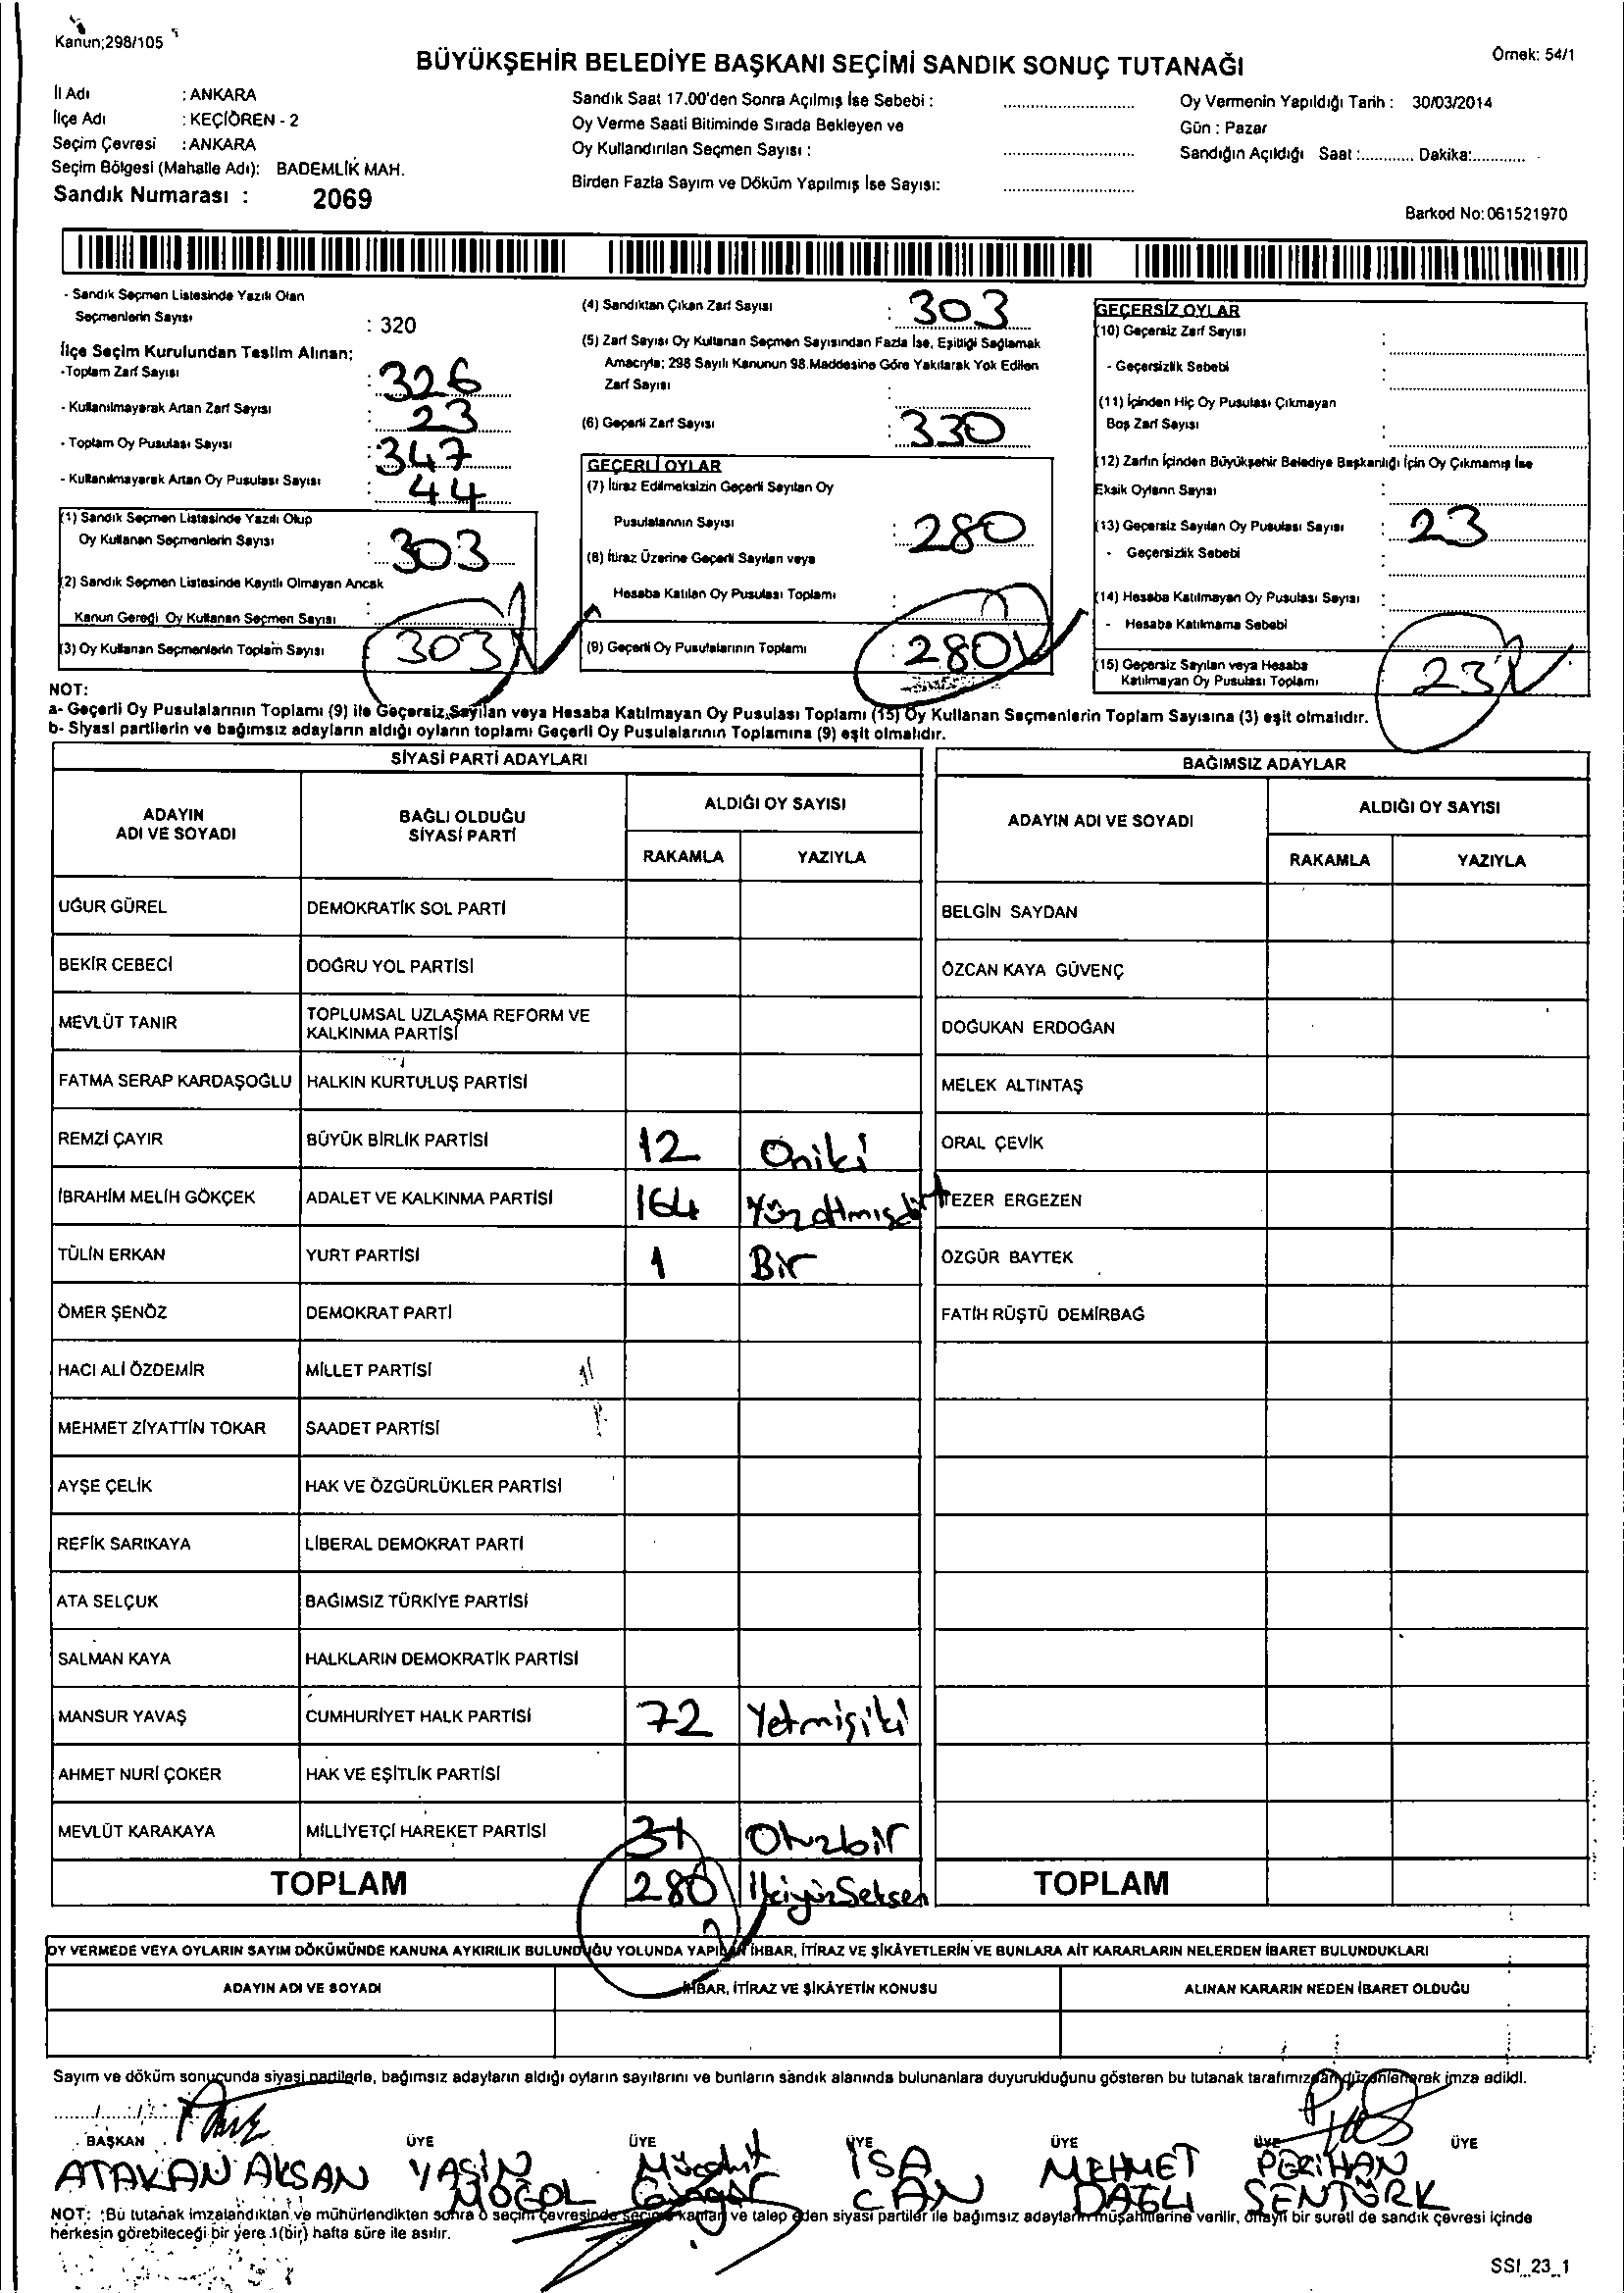 Kanun;298/105
Örnek: 54/1
BÜYÜKŞEHİR BELEDİYE BAŞKANI SEÇİMİ SANDIK SONUÇ TUTANAĞI
İl Adı : ANKARA
İlçe Adı : KEÇİÖREN - 2
Seçim Çevresi : ANKARA
Seçim Bölgesi (Mahalle Adı): BADEMLİK MAH.
Sandık Numarası : 2069
Sandık Saat 17.00'den Sonra Açılmış İse Sebebi :
Oy Verme Saati Bitiminde Sırada Bekleyen ve
Oy Kullandırılan Seçmen Sayısı :
Birden Fazla Sayım ve Döküm Yapılmış İse Sayısı:
Oy Vermenin Yapıldığı Tarih : 30/03/2014
Gün : Pazar
Sandığın Açıldığı Saat :............ Dakika:............
Barkod No:061521970
- Sandık Seçmen Listesinde Yazılı Olan
Seçmenlerin Sayısı : 320
İlçe Seçim Kurulundan Teslim Alınan;
-Toplam Zarf Sayısı : 326
- Kullanılmayarak Artan Zarf Sayısı : 23
- Toplam Oy Pusulası Sayısı : 347
- Kullanılmayarak Artan Oy Pusulası Sayısı : 44
(1) Sandık Seçmen Listesinde Yazılı Olup
Oy Kullanan Seçmenlerin Sayısı : 303
(2) Sandık Seçmen Listesinde Kayıtlı Olmayan Ancak
Kanun Gereği Oy Kullanan Seçmen Sayısı :
(3) Oy Kullanan Seçmenlerin Toplam Sayısı : 303
(4) Sandıktan Çıkan Zarf Sayısı : 303
(5) Zarf Sayısı Oy Kullanan Seçmen Sayısından Fazla İse, Eşitliği Sağlamak
Amacıyla; 298 Sayılı Kanunun 98.Maddesine Göre Yakılarak Yok Edilen
Zarf Sayısı :
(6) Geçerli Zarf Sayısı : 330
GEÇERLİ OYLAR
(7) İtiraz Edilmeksizin Geçerli Sayılan Oy
Pusulalarının Sayısı : 280
(8) İtiraz Üzerine Geçerli Sayılan veya
Hesaba Katılan Oy Pusulası Toplamı :
(9) Geçerli Oy Pusulalarının Toplamı : 280
GEÇERSİZ OYLAR
(10) Geçersiz Zarf Sayısı :
- Geçersizlik Sebebi :
(11) İçinden Hiç Oy Pusulası Çıkmayan
Boş Zarf Sayısı :
(12) Zarfın İçinden Büyükşehir Belediye Başkanlığı İçin Oy Çıkmamış İse
Eksik Oyların Sayısı :
(13) Geçersiz Sayılan Oy Pusulası Sayısı : 23
- Geçersizlik Sebebi :
(14) Hesaba Katılmayan Oy Pusulası Sayısı :
- Hesaba Katılmama Sebebi :
(15) Geçersiz Sayılan veya Hesaba
Katılmayan Oy Pusulası Toplamı 23
NOT:
a- Geçerli Oy Pusulalarının Toplamı (9) ile Geçersiz Sayılan veya Hesaba Katılmayan Oy Pusulası Toplamı (15) Oy Kullanan Seçmenlerin Toplam Sayısına (3) eşit olmalıdır.
b- Siyasi partilerin ve bağımsız adayların aldığı oyların toplamı Geçerli Oy Pusulalarının Toplamına (9) eşit olmalıdır.
SİYASİ PARTİ ADAYLARI
ADAYIN
ADI VE SOYADI
BAĞLI OLDUĞU
SİYASİ PARTİ
ALDIĞI OY SAYISI
RAKAMLA YAZIYLA
UĞUR GÜREL DEMOKRATİK SOL PARTİ
BEKİR CEBECİ DOĞRU YOL PARTİSİ
MEVLÜT TANIR TOPLUMSAL UZLAŞMA REFORM VE
KALKINMA PARTİSİ
FATMA SERAP KARDAŞOĞLU HALKIN KURTULUŞ PARTİSİ
REMZİ ÇAYIR BÜYÜK BİRLİK PARTİSİ 12 Oniki
İBRAHİM MELİH GÖKÇEK ADALET VE KALKINMA PARTİSİ 164 Yüzatmışdört
TÜLİN ERKAN YURT PARTİSİ 1 Bir
ÖMER ŞENÖZ DEMOKRAT PARTİ
HACI ALİ ÖZDEMİR MİLLET PARTİSİ
MEHMET ZİYATTİN TOKAR SAADET PARTİSİ
AYŞE ÇELİK HAK VE ÖZGÜRLÜKLER PARTİSİ
REFİK SARIKAYA LİBERAL DEMOKRAT PARTİ
ATA SELÇUK BAĞIMSIZ TÜRKİYE PARTİSİ
SALMAN KAYA HALKLARIN DEMOKRATİK PARTİSİ
MANSUR YAVAŞ CUMHURİYET HALK PARTİSİ 72 Yetmişiki
AHMET NURİ ÇOKER HAK VE EŞİTLİK PARTİSİ
MEVLÜT KARAKAYA MİLLİYETÇİ HAREKET PARTİSİ 31 Otuzbir
TOPLAM 280 İkiyüzSeksen
BAĞIMSIZ ADAYLAR
ADAYIN ADI VE SOYADI
ALDIĞI OY SAYISI
RAKAMLA YAZIYLA
BELGİN SAYDAN
ÖZCAN KAYA GÜVENÇ
DOĞUKAN ERDOĞAN
MELEK ALTINTAŞ
ORAL ÇEVİK
TEZER ERGEZEN
ÖZGÜR BAYTEK
FATİH RÜŞTÜ DEMİRBAĞ
TOPLAM
OY VERMEDE VEYA OYLARIN SAYIM DÖKÜMÜNDE KANUNA AYKIRILIK BULUNDUĞU YOLUNDA YAPILAN İHBAR, İTİRAZ VE ŞİKÂYETLERİN VE BUNLARA AİT KARARLARIN NELERDEN İBARET BULUNDUKLARI
ADAYIN ADI VE SOYADI İHBAR, İTİRAZ VE ŞİKÂYETİN KONUSU ALINAN KARARIN NEDEN İBARET OLDUĞU
Sayım ve döküm sonucunda siyasi partilerle, bağımsız adayların aldığı oyların sayılarını ve bunların sandık alanında bulunanlara duyurulduğunu gösteren bu tutanak tarafımızdan düzenlenerek imza edildi.
BAŞKAN ÜYE ÜYE ÜYE ÜYE ÜYE ÜYE
ATAKAN AKSAN YASİN MOGOL Mücahit İSA CAN MEHMET DAĞLI PERİHAN ŞENTÜRK
NOT: Bu tutanak imzalandıktan ve mühürlendikten sonra o seçim çevresinde seçime katılan ve talep eden siyasi partiler ile bağımsız adayların müşahitlerine verilir, onaylı bir sureti de sandık çevresi içinde
herkesin görebileceği bir yere 1(bir) hafta süre ile asılır.
SSI_23_1